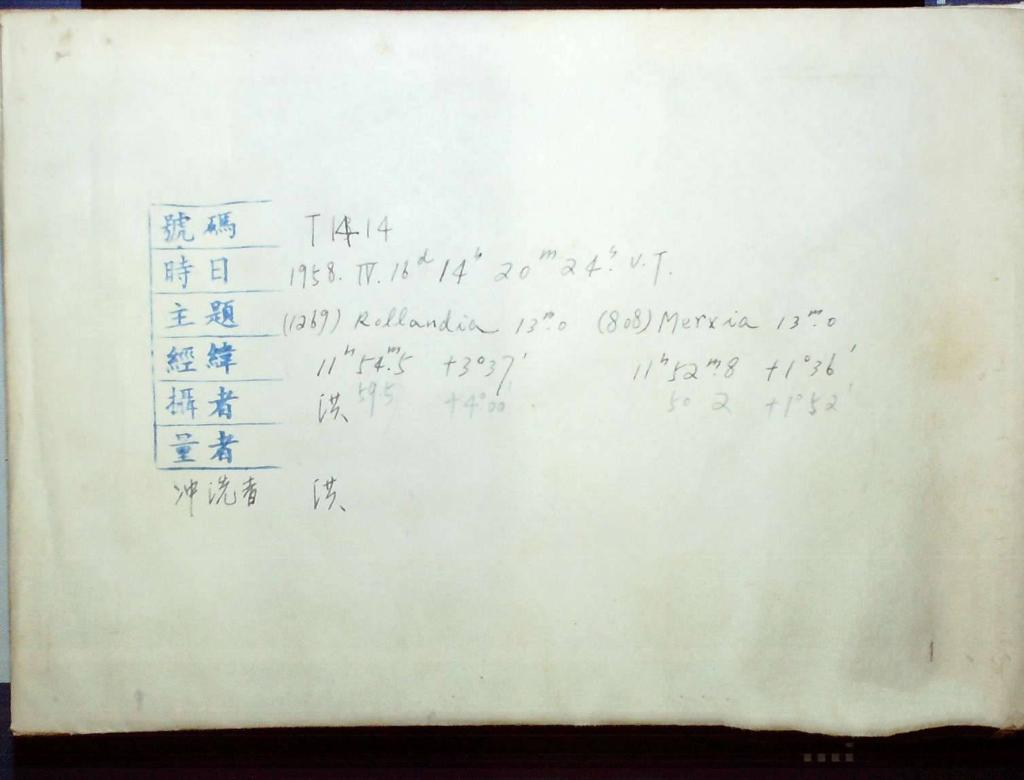 號碼 T 1414
時日 1958. IV. 16ᵈ 14ʰ 20ᵐ 24ˢ. U.T.
主題 (1269) Rollandia 13ᵐ.0 (808) Merxia 13ᵐ.0
經緯 11ʰ 54ᵐ.5 +3°37' 11ʰ 52ᵐ.8 +1°36'
攝者 洪 59.5 +4°00' 50 2 +1°52'
量者
冲洗者 洪